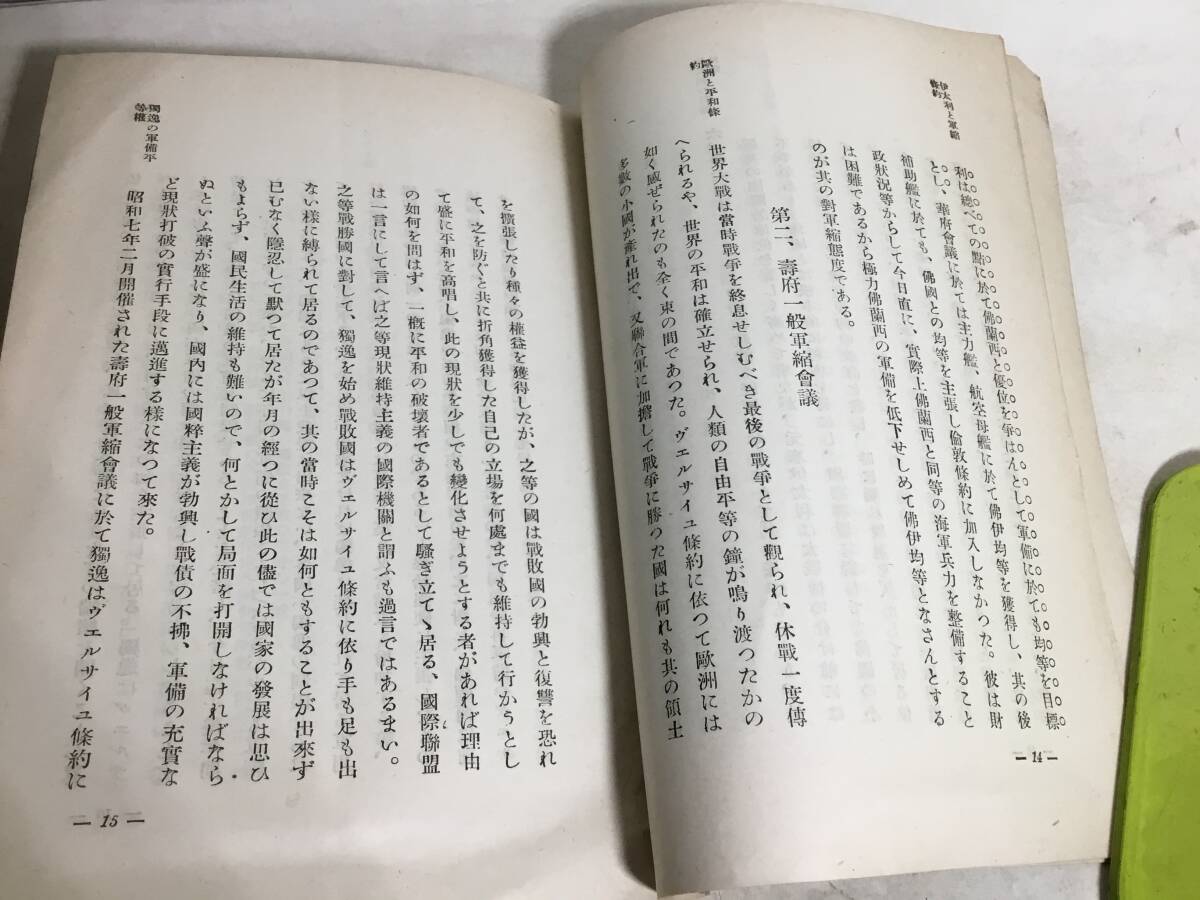 伊太利と軍縮
條約
利は總べての點に於て佛蘭西と優位を爭はんとして軍備に於ても均等を目標
とし、華府會議に於ては主力艦、航空母艦に於て佛伊均等を獲得し、其の後
補助艦に於ても、佛國との均等を主張し倫敦條約に加入しなかつた。彼は財
政狀況等からして今日直に、實際上佛蘭西と同等の海軍兵力を整備すること
は困難であるから極力佛蘭西の軍備を低下せしめて佛伊均等となさんとする
のが其の對軍縮態度である。
第二、壽府一般軍縮會議
歐洲と平和條
約
世界大戰は當時戰爭を終息せしむべき最後の戰爭として觀られ、休戰一度傳
へられるや、世界の平和は確立せられ、人類の自由平等の鐘が鳴り渡つたかの
如く感ぜられたのも全く束の間であつた。ヴェルサイユ條約に依つて歐洲には
多數の小國が産れ出で、又聯合軍に加擔して戰爭に勝つた國は何れも其の領土
— 14 —
を擴張したり種々の權益を獲得したが、之等の國は戰敗國の勃興と復讐を恐れ
て、之を防ぐと共に折角獲得した自己の立場を何處までも維持して行かうとし
て盛に平和を高唱し、此の現狀を少しでも變化させようとする者があれば理由
の如何を問はず、一概に平和の破壞者であるとして騷ぎ立てゝ居る、國際聯盟
は一言にして言へば之等現狀維持主義の國際機關と謂ふも過言ではあるまい。
之等戰勝國に對して、獨逸を始め戰敗國はヴェルサイユ條約に依り手も足も出
ない樣に縛られて居るのであつて、其の當時こそは如何ともすることが出來ず
已むなく隱忍して默つて居たが年月の經つに從ひ此の儘では國家の發展は思ひ
もよらず、國民生活の維持も難いので、何とかして局面を打開しなければなら
ぬといふ聲が盛になり、國內には國粹主義が勃興し戰債の不拂、軍備の充實な
ど現狀打破の實行手段に邁進する樣になつて來た。
獨逸の軍備平
等權
昭和七年二月開催された壽府一般軍縮會議に於て獨逸はヴェルサイユ條約に
— 15 —